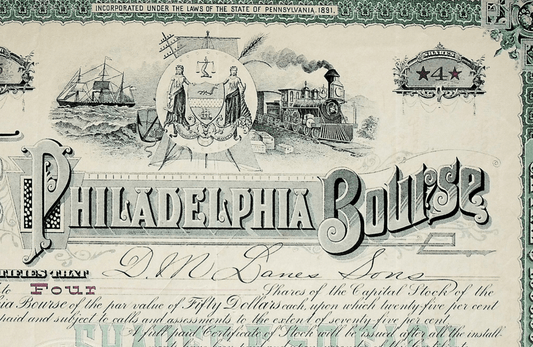 INCORPORATED UNDER THE LAWS OF THE STATE OF PENNSYLVANIA, 1891.
SHARES
★4★
PHILADELPHIA BOURSE
TIFIES THAT D. M. Lanes Sons
to Four Shares of the Capital Stock of the
ia Bourse of the par value of Fifty Dollars each, upon which twenty five per cent
paid and subject to calls and assessments to the extent of seventy-five per cent.
A full paid Certificate of Stock will be issued after all the install-